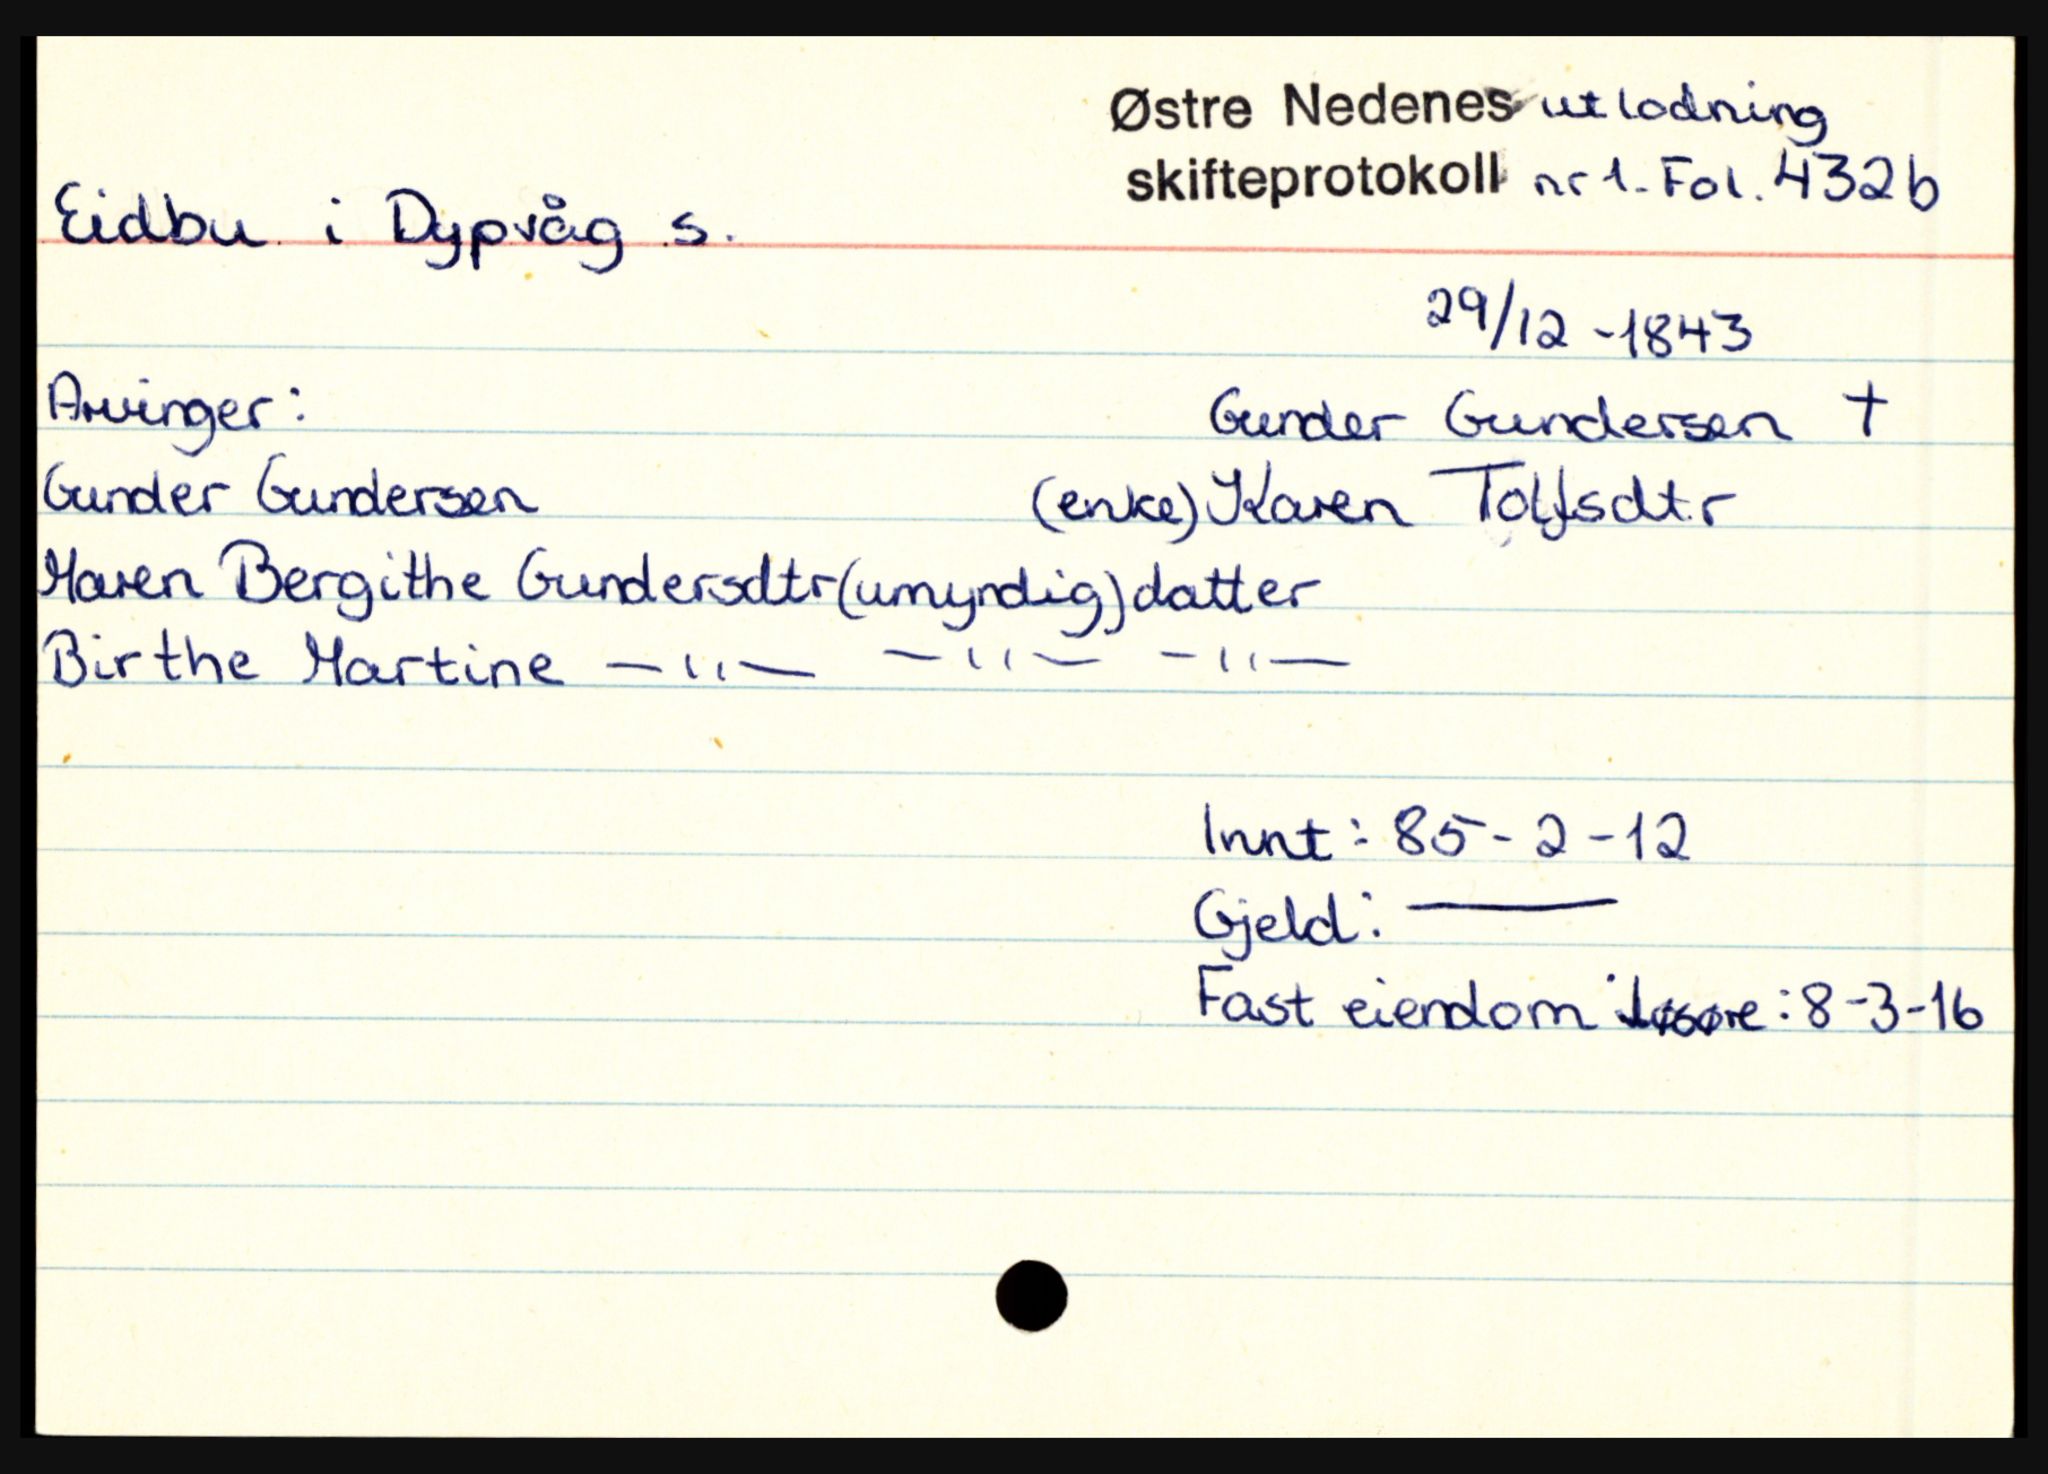 Østre Nedenes utlodning
skifteprotokoll nr 1. Fol. 432b
Eidbu i Dypvåg s.
29/12 - 1843
Arvinger:
Gunder Gundersen †
Gunder Gundersen
(enke) Karen Tolfsdtr
Maren Bergithe Gundersdtr (umyndig) datter
Birthe Martine —"— —"— —"—
Innt: 85 - 2 - 12
Gjeld: ——
Fast eiendom i løsøre: 8-3-16